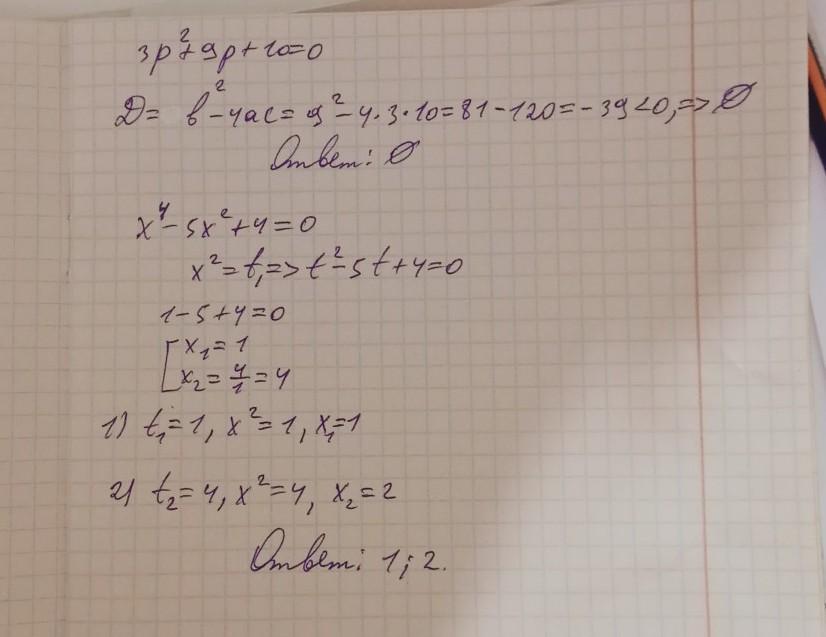 3p²+9p+10=0
D= b²-4ac= 9²-4·3·10=81-120=-39<0,=> Ø
Ответ: Ø
x⁴-5x²+4=0
x²=t,=>t²-5t+4=0
1-5+4=0
[x₁=1
x₂=4/1=4
1) t₁=1, x²=1, x₁=1
2) t₂=4, x²=4, x₂=2
Ответ: 1; 2.